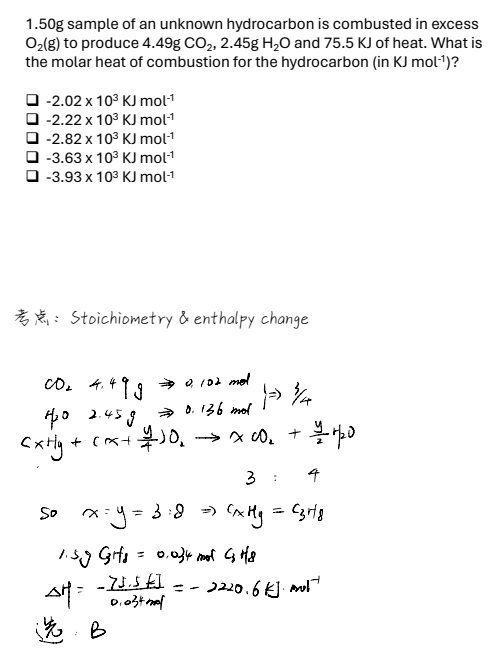 1.50g sample of an unknown hydrocarbon is combusted in excess
O₂(g) to produce 4.49g CO₂, 2.45g H₂O and 75.5 KJ of heat. What is
the molar heat of combustion for the hydrocarbon (in KJ mol⁻¹)?
☐ -2.02 x 10³ KJ mol⁻¹
☐ -2.22 x 10³ KJ mol⁻¹
☐ -2.82 x 10³ KJ mol⁻¹
☐ -3.63 x 10³ KJ mol⁻¹
☐ -3.93 x 10³ KJ mol⁻¹
考点: Stoichiometry & enthalpy change
CO₂ 4.49g ⇒ 0.102 mol
H₂O 2.45g ⇒ 0.136 mol } ⇒ 3/4
CxHy + (x+y/4)O₂ → xCO₂ + y/2 H₂O
3 : 4
So x:y = 3:8 ⇒ CxHy = C₃H₈
1.5g C₃H₈ = 0.034 mol C₃H₈
ΔH = -75.5 kJ / 0.034 mol = -2220.6 kJ·mol⁻¹
选 B